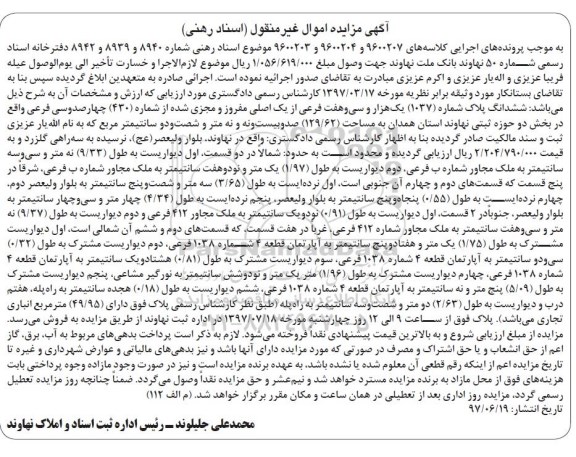 آگهی مزایده اموال غیرمنقول (اسناد رهنی)
به موجب پرونده‌های اجرایی کلاسه‌های ۹۶۰۰۲۰۷ و ۹۶۰۰۲۰۴ و ۹۶۰۰۲۰۳ موضوع اسناد رهنی شماره ۸۹۴۰ و ۸۹۳۹ و ۸۹۴۲ دفترخانه اسناد
رسمی شـــماره ۵۰ نهاوند بانک ملت نهاوند جهت وصول مبلغ ۱/۰۵۶/۶۱۹/۰۰۰ ریال موضوع لازم‌الاجرا و خسارت تأخیر الی یوم‌الوصول عیله
فریبا عزیزی و اله‌یار عزیزی و اکرم عزیزی مبادرت به تقاضای صدور اجرائیه نموده است. اجرائی صادره به متعهدین ابلاغ گردیده سپس بنا به
تقاضای بستانکار مورد وثیقه برابر نظریه مورخه ۱۳۹۷/۰۳/۱۷ کارشناس رسمی دادگستری مورد ارزیابی که ارزش و مشخصات آن به شرح ذیل
می‌باشد: ششدانگ پلاک شماره (۱۰۳۷) یک‌هزار و سی‌وهفت فرعی از یک اصلی مفروز و مجزی شده از شماره (۴۳۰) چهارصدوسی فرعی واقع
در بخش دو حوزه ثبتی نهاوند استان همدان به مساحت (۱۲۹/۶۲) صدوبیست‌ونه و نه متر و شصت‌ودو سانتیمتر مربع که به نام الله‌یار عزیزی
ثبت و سند مالکیت صادر گردیده بنا به اظهار کارشناس رسمی دادگستری: واقع در نهاوند، بلوار ولیعصر(عج)، نرسیده به سه‌راهی گلزرد و به
قیمت ۲/۲۰۴/۷۹۰/۰۰۰ ریال ارزیابی گردیده و محدود اســـت به حدود: شمالا در دو قسمت، اول دیواریست به طول (۹/۳۳) نه متر و سی‌وسه
سانتیمتر به ملک مجاور شماره ب فرعی، دوم دیواریست به طول (۱/۹۷) یک متر و نودوهفت سانتیمتر به ملک مجاور شماره ب فرعی، شرقا در
پنج قسمت که قسمت‌های دوم و چهارم آن جنوبی است، اول نرده‌ایست به طول (۳/۶۵) سه متر و شصت‌وپنج سانتیمتر به بلوار ولیعصر دوم،
چهارم نرده‌ایســـت به طول (۰/۵۵) پنجاه‌وپنج سانتیمتر به بلوار ولیعصر، پنجم نرده‌ایست به طول (۴/۳۴) چهار متر و سی‌وچهار سانتیمتر به
بلوار ولیعصر، جنوباًدر ۲ قسمت، اول دیواریست به طول (۰/۹۱) نودویک سانتیمتر به ملک مجاور ۴۱۲ فرعی و دوم دیواریست به طول (۹/۳۷) نه
متر و سی‌وهفت سانتیمتر به ملک مجاور شماره ۴۱۲ فرعی، غرباً در هفت قسمت که قسمت‌های دوم و ششم آن شمالی است، اول دیواریست
مشـــترک به طول (۱/۷۵) یک متر و هفتادوپنج سانتیمتر به آپارتمان قطعه ۴ شـــماره ۱۰۳۸ فرعی، دوم دیواریست مشترک به طول (۰/۳۲)
سی‌ودو سانتیمتر به آپارتمان قطعه ۴ شماره ۱۰۳۸ فرعی، سوم دیواریست مشترک به طول (۰/۸۱) هشتادویک سانتیمتر به آپارتمان قطعه ۴
شماره ۱۰۳۸ فرعی، چهارم دیواریست مشترک به‌طول (۱/۹۶) متر یک متر و نودوشش سانتیمتر به نورگیر مشاعی، پنجم دیواریست مشترک
به طول (۵/۰۹) پنج متر و نه سانتیمتر به آپارتمان قطعه ۴ شماره ۱۰۳۸ فرعی، ششم دیواریست به طول (۰/۱۸) هجده سانتیمتر به راه‌پله، هفتم
درب و دیواریست به طول (۲/۶۳) دو متر و شصت‌وسه سانتیمتر به راه‌پله (طبق نظر کارشناس رسمی پلاک فوق دارای (۴۹/۹۵) مترمربع انباری
تجاری می‌باشد). پلاک فوق از ســـاعت ۹ الی ۱۲ روز چهارشنبه مورخه ۱۳۹۷/۰۷/۱۸ در اداره ثبت نهاوند از طریق مزایده به فروش می‌رسد.
مزایده از مبلغ ارزیابی شروع و به بالاترین قیمت پیشنهادی نقداً فروخته می‌شود. لازم به ذکر است پرداخت بدهی‌های مربوط به آب، برق، گاز
اعم از حق انشعاب و یا حق اشتراک و مصرف در صورتی که مورد مزایده دارای آنها باشد و نیز بدهی‌های مالیاتی و عوارض شهرداری و غیره تا
تاریخ مزایده اعم از اینکه رقم قطعی آن معلوم شده یا نشده باشد، به عهده برنده مزایده است و نیز در صورت وجود مازاده وجوه پرداختی بابت
هزینه‌های فوق از محل مازاد به برنده مزایده مسترد خواهد شد و نیم‌عشر و حق مزایده نقداً وصول می‌گردد. ضمناً چنانچه روز مزایده تعطیل
رسمی گردد، مزایده روز اداری بعد از تعطیلی در همان ساعت و مکان مقرر برگزار خواهد شد. (م الف ۱۱۲)
تاریخ انتشار: ۹۷/۰۶/۱۹
محمدعلی جلیلوند ــ رئیس اداره ثبت اسناد و املاک نهاوند